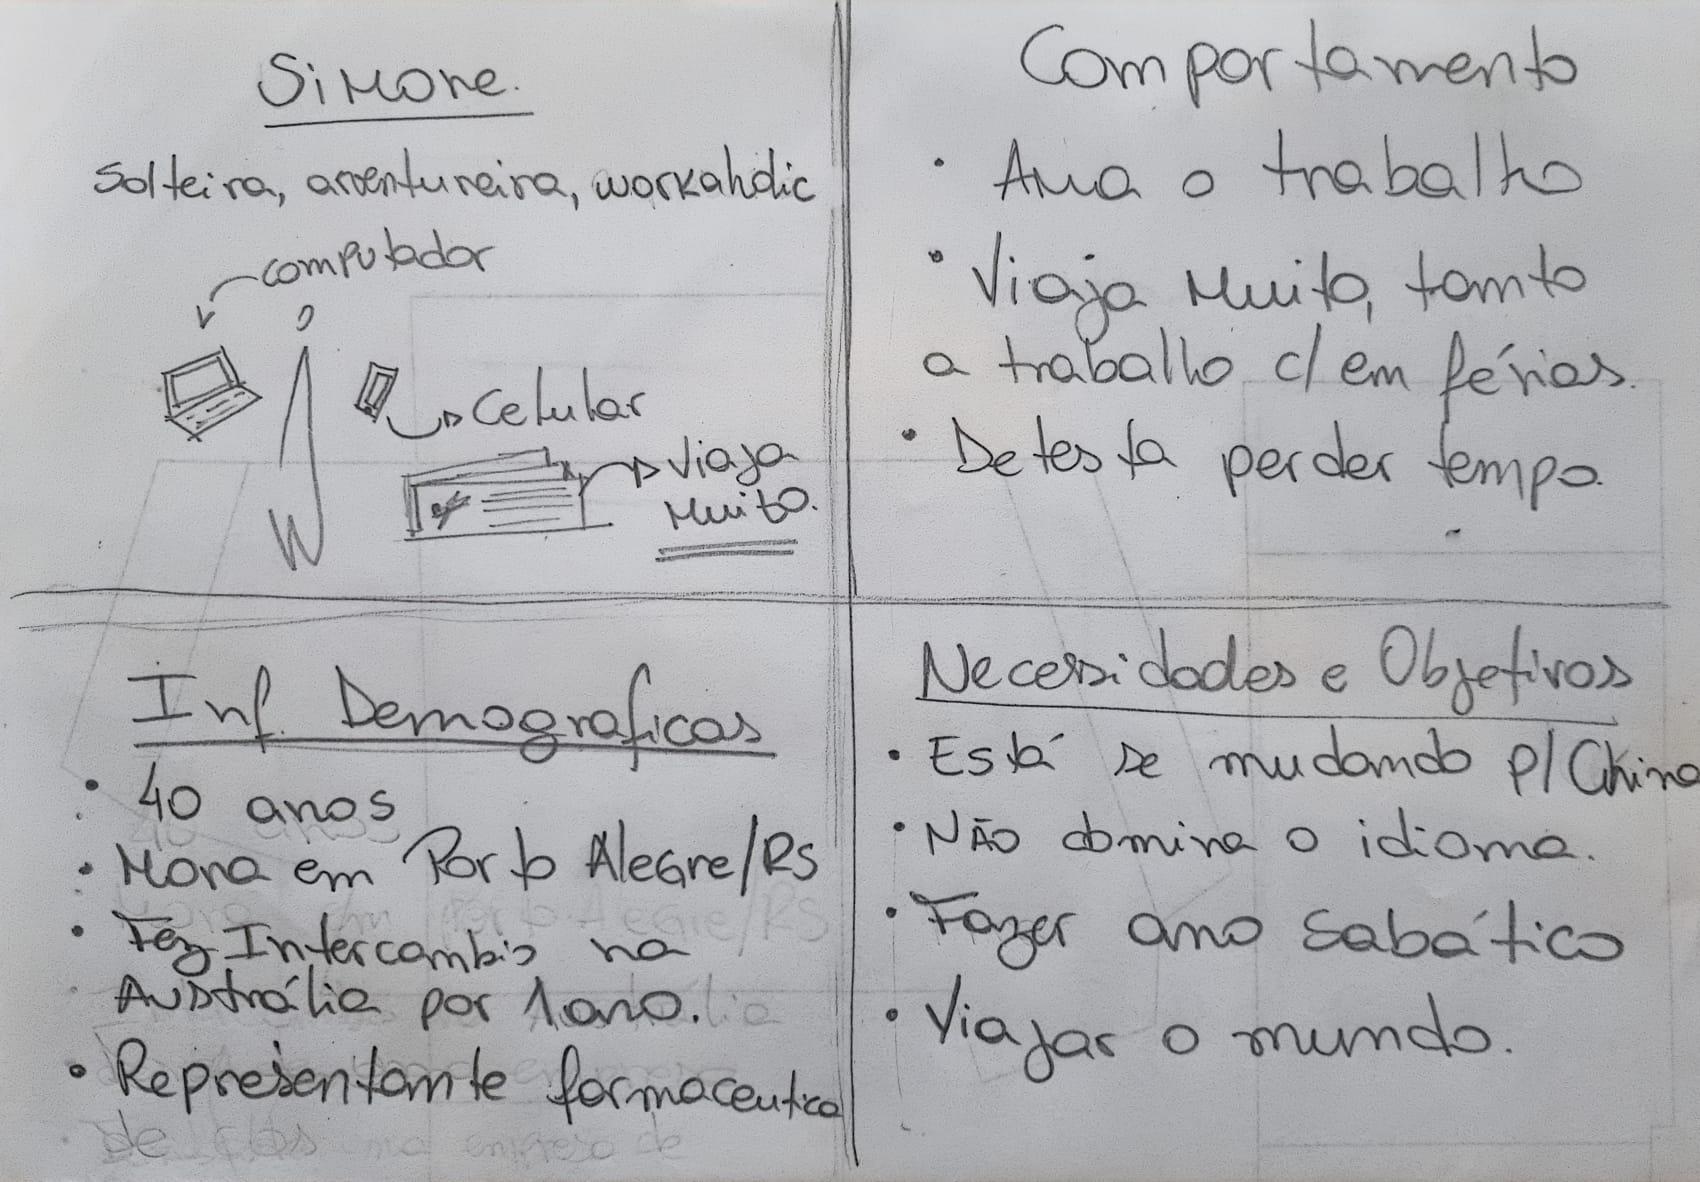 Simone.
Solteira, aventureira, workaholic
computador
Celular
Viaja
Muito.
Comportamento
• Ama o trabalho
• Viaja Muito, tanto
a trabalho c/ em férias.
• Detesta perder tempo.
Inf. Demograficas
• 40 anos
• Mora em Porto Alegre/RS
• Fez Intercambio na
Austrália por 1 ano.
• Representante farmaceutica
de
Necessidades e Objetivos
• Está se mudando p/ China
• NÃO domina o idioma.
• Fazer ano sabático
• Viajar o mundo.